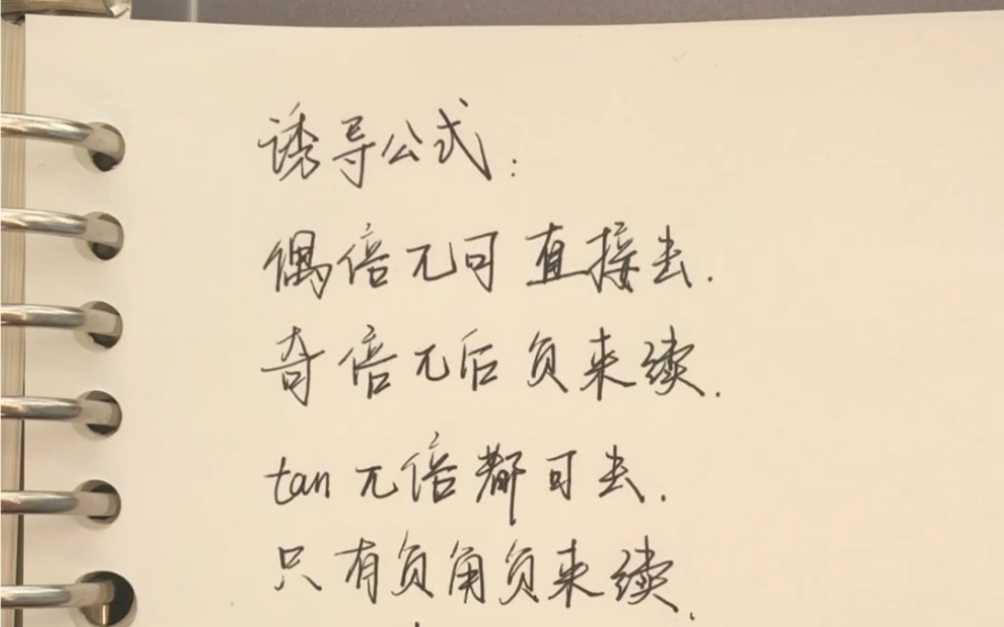 诱导公式:
偶倍π可直接去.
奇倍π后负来续.
tan π倍都可去.
只有负角负来续.